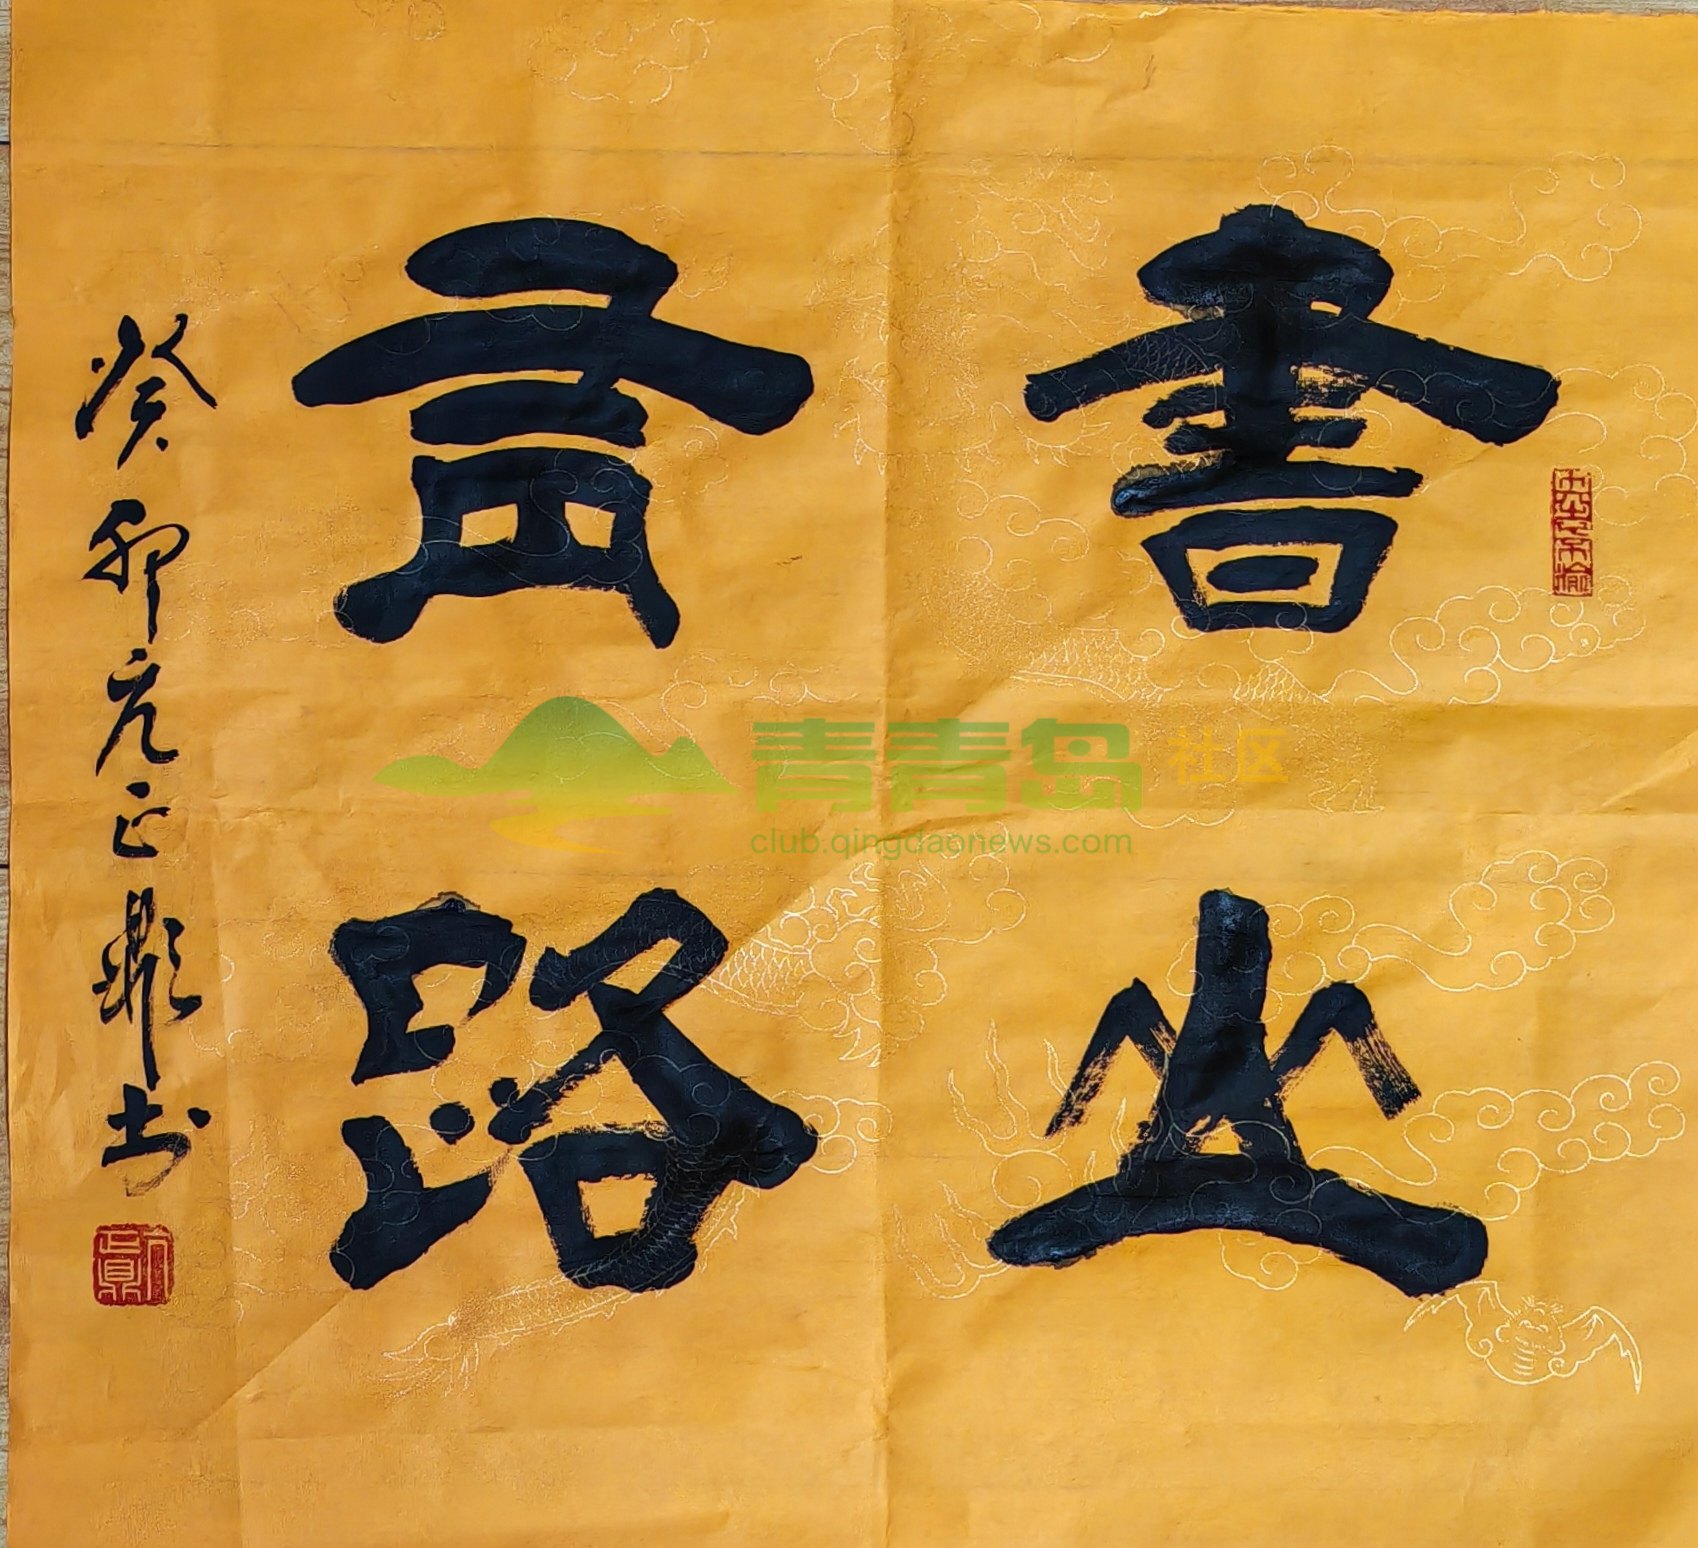 書山
有路
癸卯亢正鼎书
青青岛社区
club.qingdaonews.com